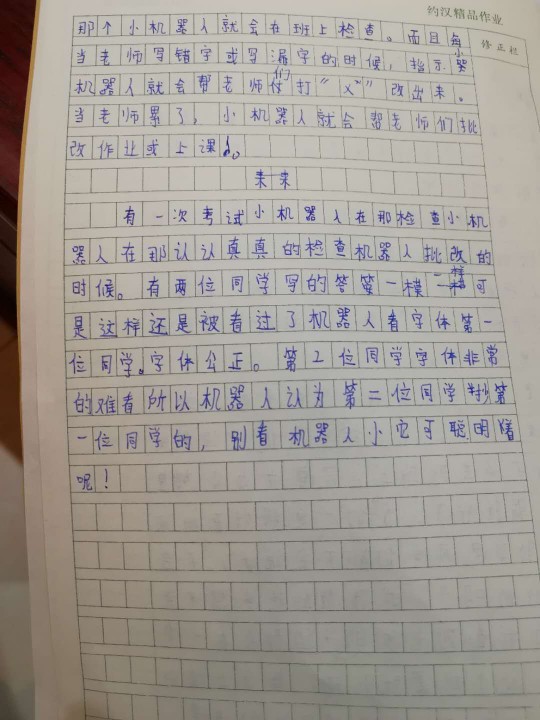 约汉精品作业
修正栏
那个小机器人就会在班上检查。而且每
当老师写错字或写漏字的时候,指示器
机器人就会帮老师们打“×”改出来。
当老师累了,小机器人就会帮老师们批
改作业或上课。
未来
有一次考试小机器人在那检查小机
器人在那认认真真的检查机器人批改的
时候。有两位同学写的答案一模一样可
是这样还是被看过了机器人看字体第一
位同学。字体公正。第2位同学字体非常
的难看所以机器人认为第二位同学抄第
一位同学的,别看机器人小它可聪明着
呢!